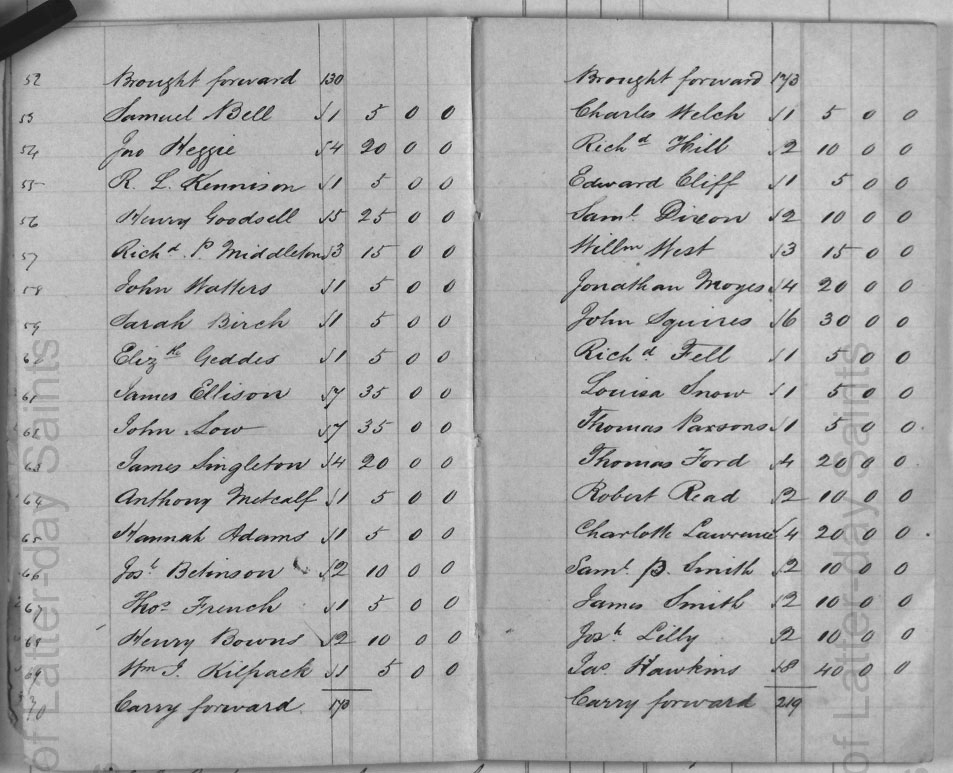 52 Brought forward 130
53 Samuel Bell ✓1 5 0 0
54 Jno Heggie ✓4 20 0 0
55 R. L. Kennison ✓1 5 0 0
56 Henry Goodsell ✓5 25 0 0
57 Richd. P Middleton ✓3 15 0 0
58 John Watters ✓1 5 0 0
59 Sarah Birch ✓1 5 0 0
60 Elizth Geddes ✓1 5 0 0
61 James Ellison ✓7 35 0 0
62 John Low ✓7 35 0 0
63 James Singleton ✓4 20 0 0
64 Anthony Metcalf ✓1 5 0 0
65 Hannah Adams ✓1 5 0 0
66 Josh Betinson ✓2 10 0 0
67 Thos French ✓1 5 0 0
68 Henry Bowns ✓2 10 0 0
69 Wm J. Kilpack ✓1 5 0 0
70 Carry forward. 173
Brought forward 173
Charles Welch ✓1 5 0 0
Richd Hill ✓2 10 0 0
Edward Cliff ✓1 5 0 0
Saml. Dixon ✓2 10 0 0
Willm West ✓3 15 0 0
Jonathan Moyes ✓4 20 0 0
John Squires ✓6 30 0 0
Richd Fell ✓1 5 0 0
Louisa Snow ✓1 5 0 0
Thomas Parsons ✓1 5 0 0
Thomas Ford ✓4 20 0 0
Robert Read ✓2 10 0 0
Charlotte Lawrence ✓4 20 0 0
Saml. B. Smith ✓2 10 0 0
James Smith ✓2 10 0 0
Josh Lilly ✓2 10 0 0
Jas. Hawkins ✓8 40 0 0
Carry forward 219
of Latter-day Saints
of Latter-day Saints